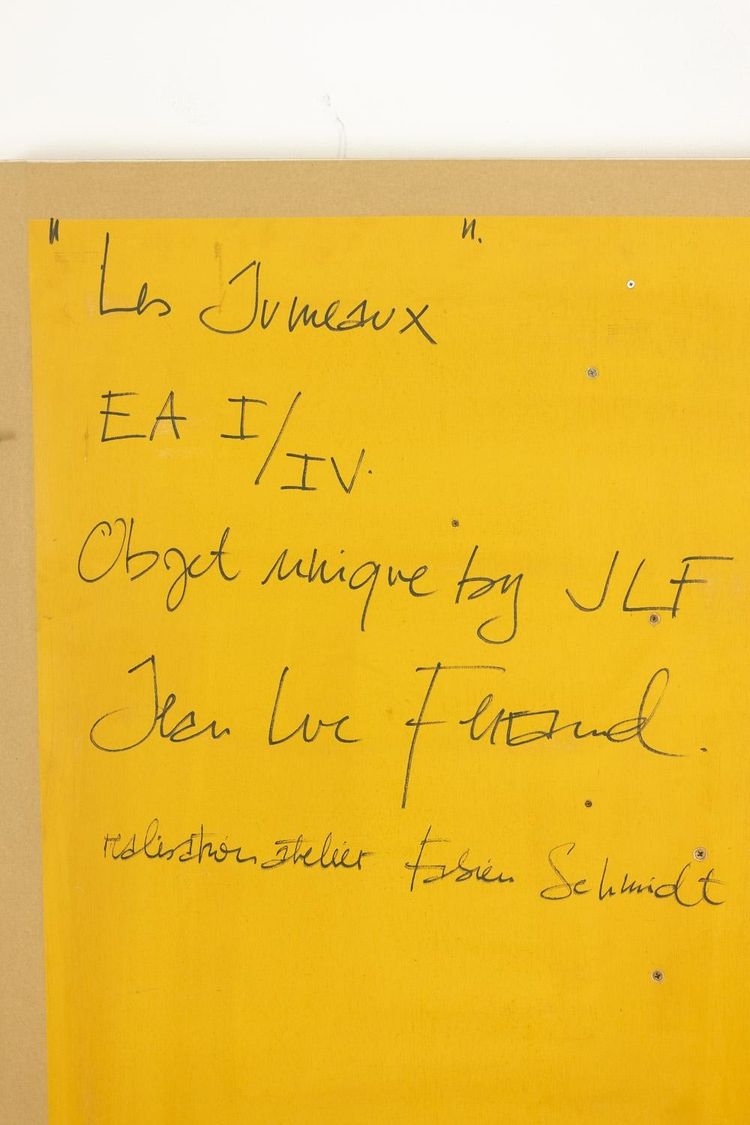 "Les Jumeaux".
EA I/IV.
Objet unique by JLF
Jean Luc Ferrand.
realisation atelier Fabien Schmidt